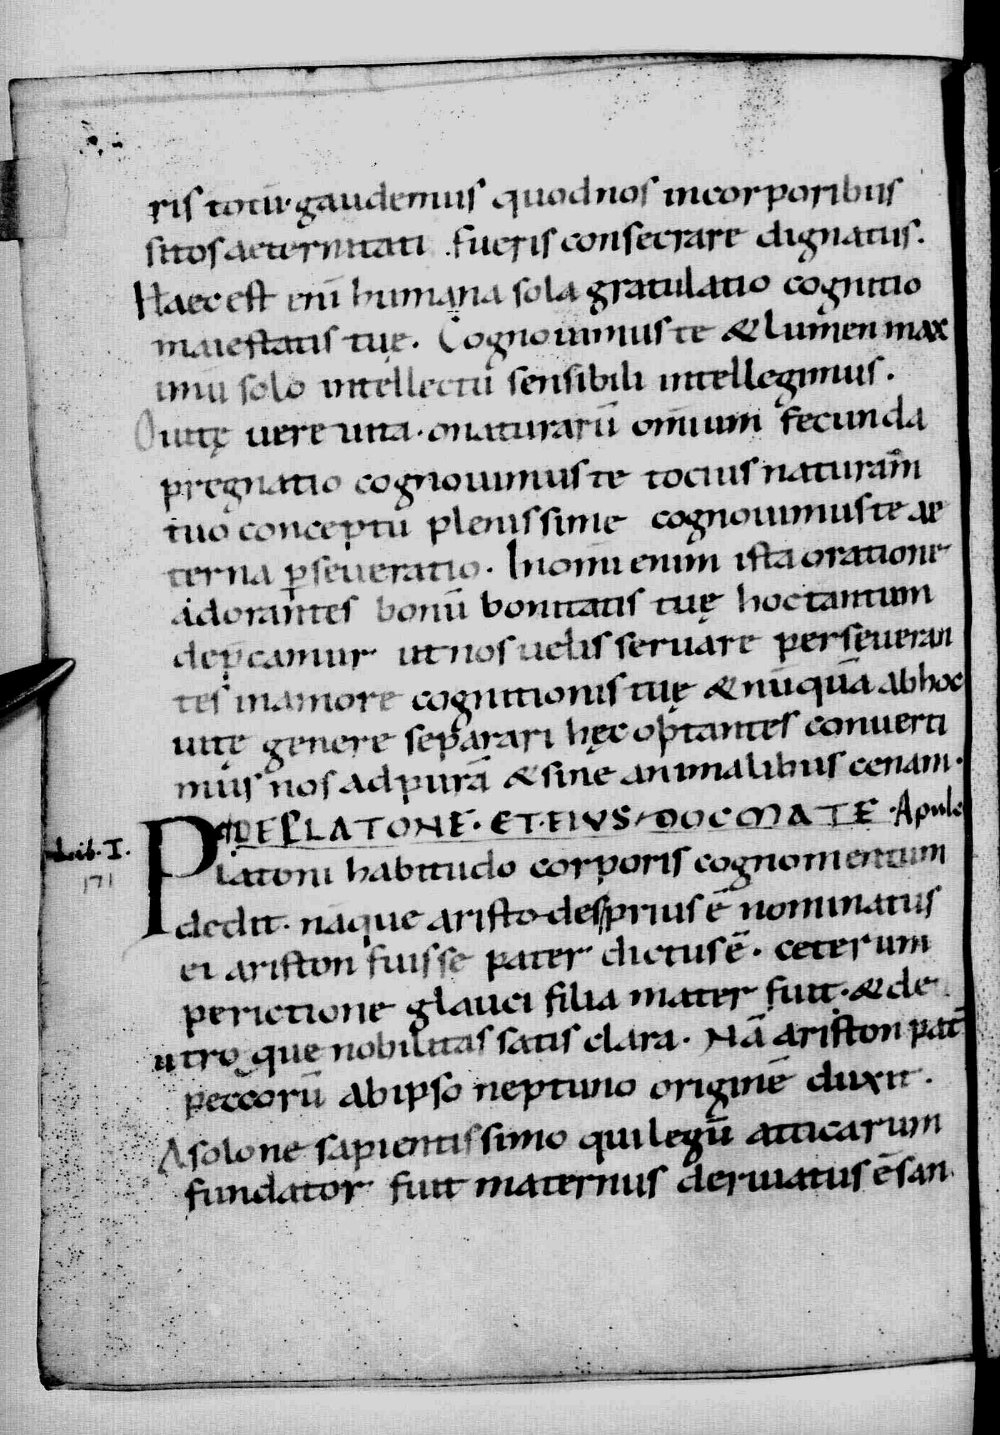 ris totū· gaudemus quod nos in corporibus
sitos aeternitati fueris consecrare dignatus.
Haec est enī humana sola gratulatio cognitio
maiestatis tuę. Cognouimus te & lumen max
imū solo intellectū sensibili intellegimus.
O uitę uere uita· o naturarū omīum fecunda
pregnatio cognouimus te tocius naturam̄
tuo conceptu plenissime cognouimus te ae
terna p̄seueratio. In omī enim ista oratione
adorantes bonū bonitatis tuę hoc tantum
dep̄camur ut nos uelis seruare perseueran
tes in amore cognitionis tuę & nūquā ab hoc
uitę genere separari hęc optantes conuerti
mus nos ad purā & sine animalibus cenam·
DE PLATONE· ET· EIVS· DOCMATE· Apule
Lib. I.
171
Platoni habitudo corporis cognomentum
dedit· nāque aristo-des prius ē nominatus
ei ariston fuisse pater dictus ē· ceterum
perictione glauci filia mater fuit· & de
utroque nobilitas satis clara· Nā ariston pat̄
peccorū ab ipso neptuno originē duxit.
A solone sapientissimo qui legū atticarum
fundator fuit maternus deriuatus ē san